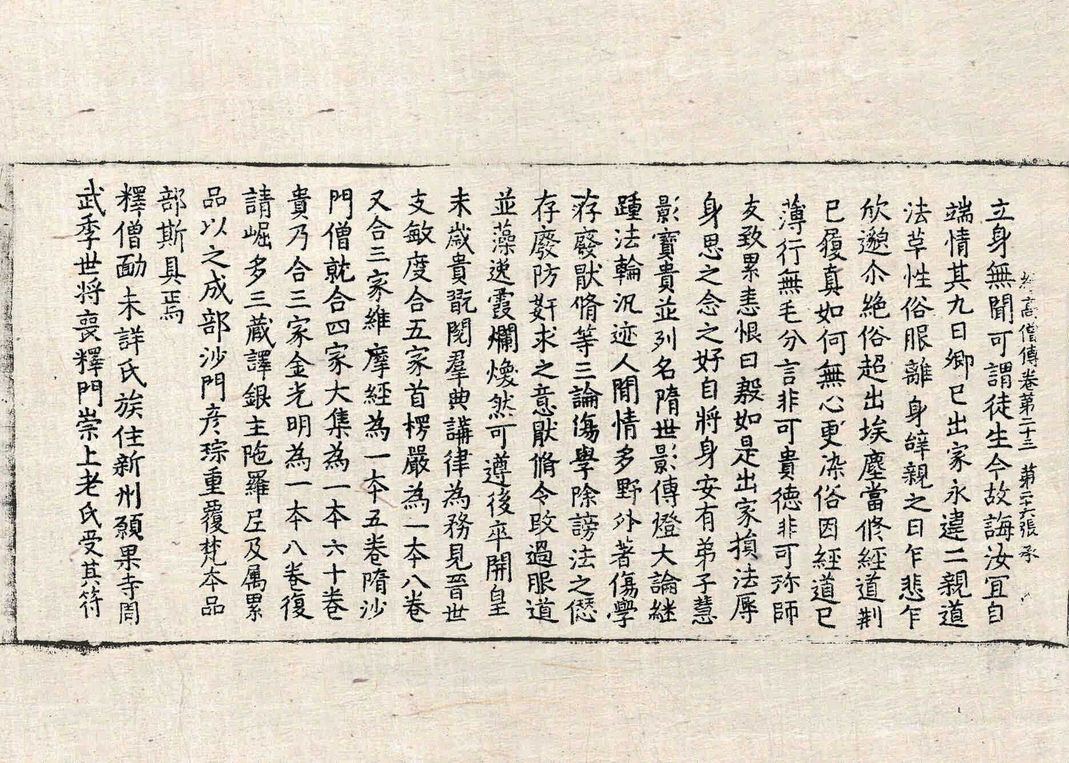 立身無聞可謂徒生今故誨汝宜自
續高僧傳卷第二十三 第二十六張 承
端情其九曰卿已出家永違二親道
法革性俗服離身辭親之日乍悲乍
欣邈尒絶俗超出埃塵當修經道制
已履真如何無心更染俗因經道已
薄行無毛分言非可貴德非可珎師
友致累恚恨日殺如是出家損法辱
身思之念之好自將身安有弟子慧
影寶貴並列名隋世影傳燈大論継
踵法輪汎迹人間情多野外著傷學
存廢猒脩等三論傷學除謗法之愆
存廢防姧求之意猒脩令改過服道
並藻逸霞爛煥然可遵後卒開皇
末歲貴翫閱羣典講律為務見晉世
支敏度合五家首楞嚴為一本八卷
又合三家維摩經為一本五卷隋沙
門僧就合四家大集為一本六十卷
貴乃合三家金光明為一本八卷復
請崛多三藏譯銀主陁羅尼及属累
品以之成部沙門彦琮重覆梵本品
部斯具焉
釋僧勔未詳氏族住新州願果寺周
武季世将喪釋門崇上老氏受其符